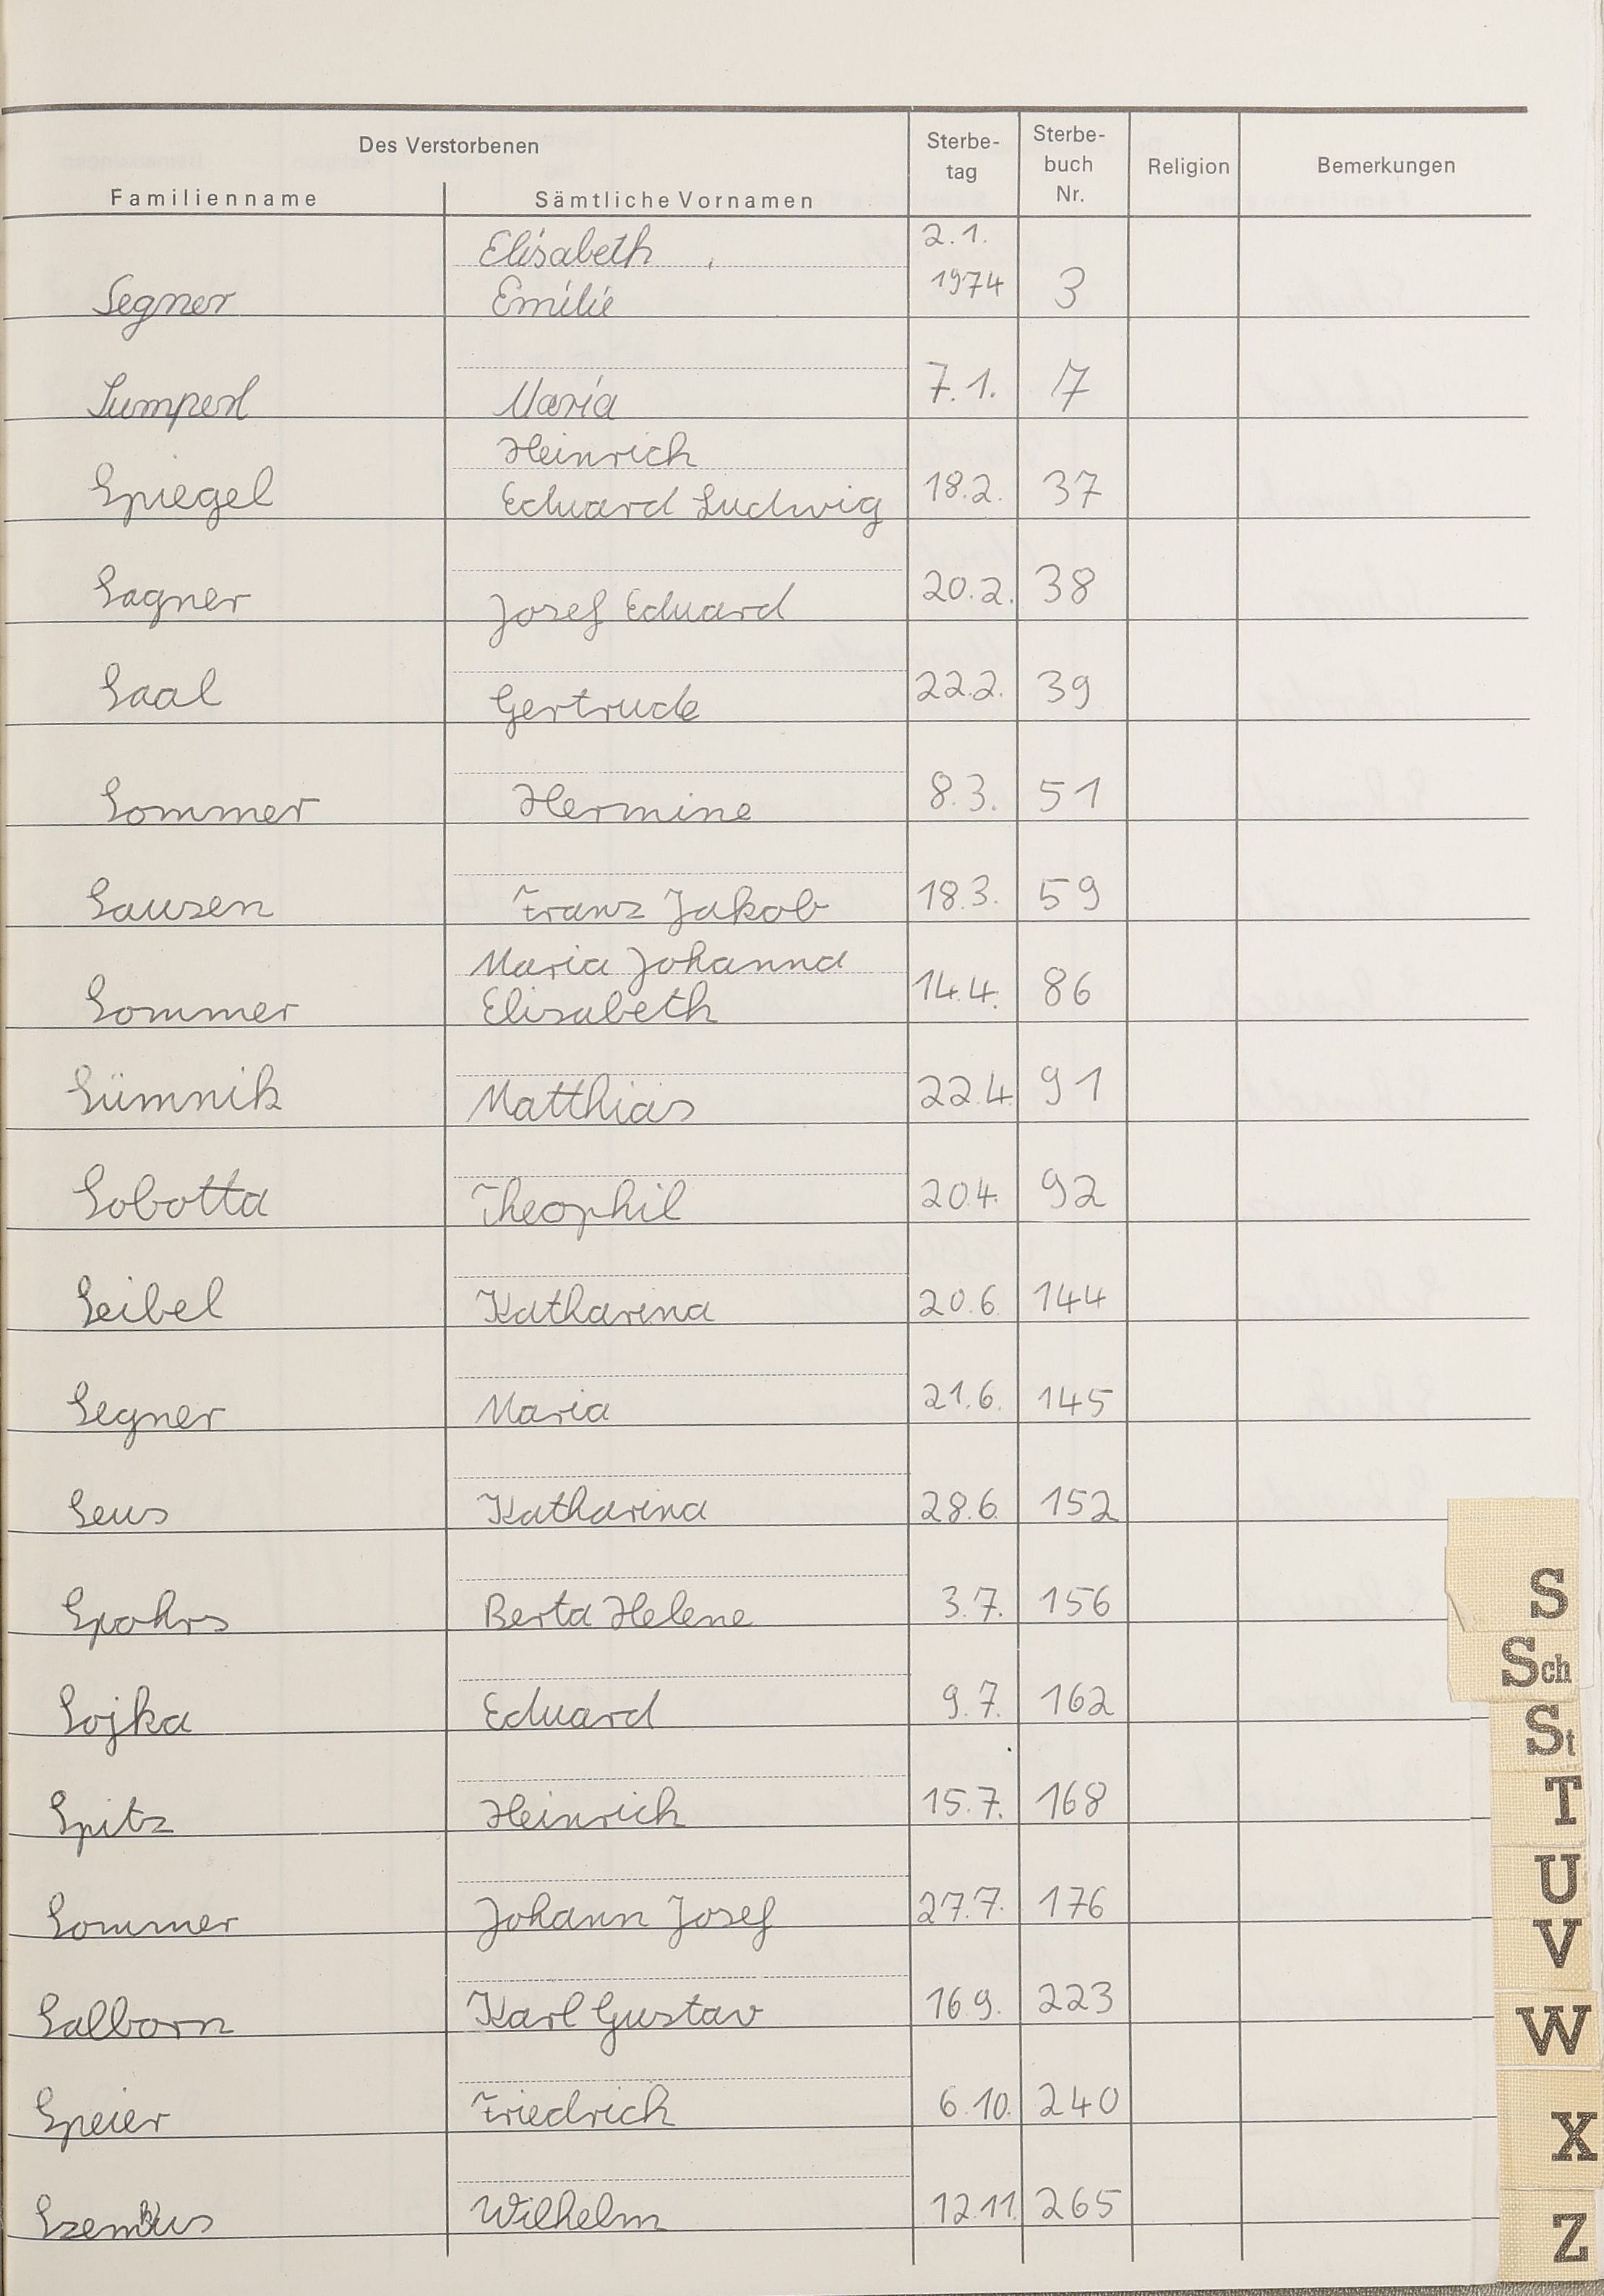 Des Verstorbenen
Familienname Sämtliche Vornamen Sterbe-tag Sterbe-buch Nr. Religion Bemerkungen
Elisabeth 2.1.
Segner Emilie 1974 3
Sumperl Maria 7.1. 7
Heinrich
Spiegel Eduard Ludwig 18.2. 37
Sagner Josef Eduard 20.2. 38
Saal Gertrude 22.2. 39
Sommer Hermine 8.3. 51
Sausen Franz Jakob 18.3. 59
Maria Johanna
Sommer Elisabeth 14.4. 86
Sümnik Matthias 22.4. 91
Sobotta Theophil 20.4. 92
Seibel Katharina 20.6. 144
Segner Maria 21.6. 145
Seus Katharina 28.6. 152
Spohrs Berta Helene 3.7. 156
Sojka Eduard 9.7. 162
Spitz Heinrich 15.7. 168
Sommer Johann Josef 27.7. 176
Salborn Karl Gustav 16.9. 223
Speier Friedrich 6.10. 240
Wilhelm 12.11. 265
S
Sch
St
T
U
V
W
X
Z